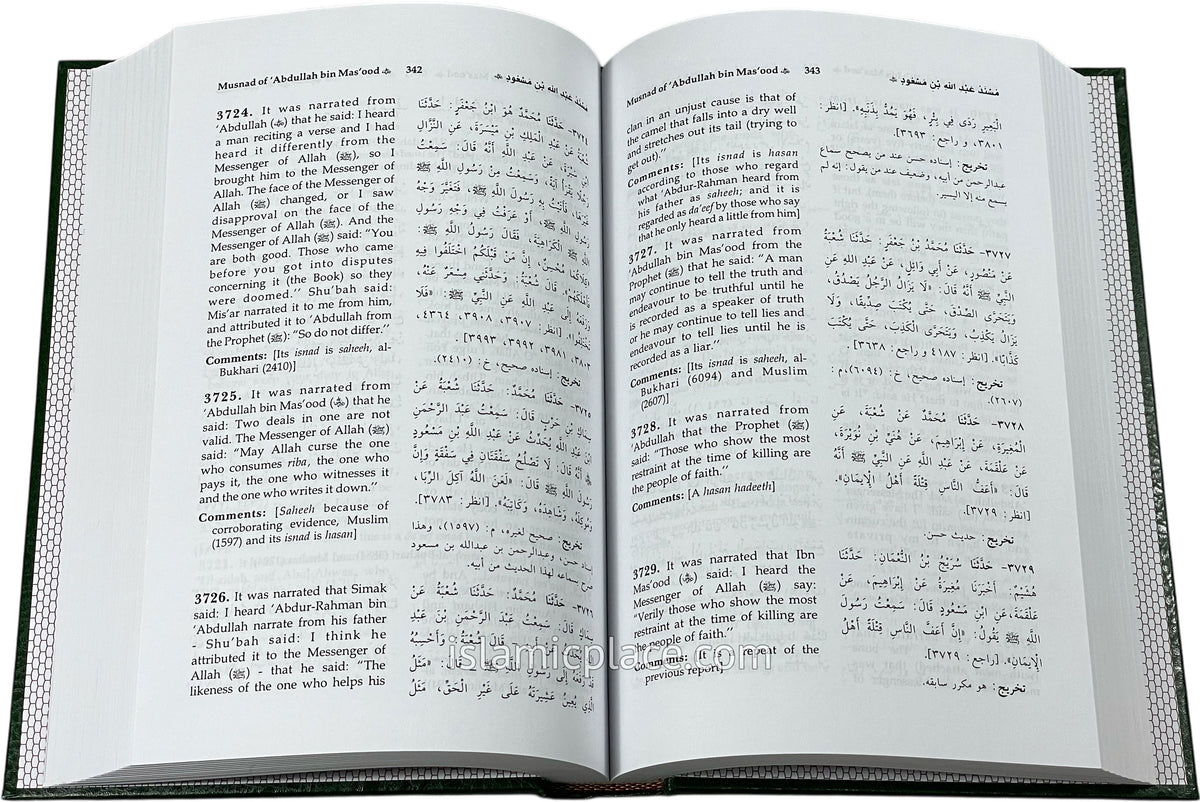 Musnad of 'Abdullah bin Mas'ood 342 مسند عبد الله بن مسعود
3724. It was narrated from
'Abdullah (ؓ) that he said: I heard
a man reciting a verse and I had
heard it differently from the
Messenger of Allah (ﷺ), so I
brought him to the Messenger of
Allah. The face of the Messenger of
Allah (ﷺ) changed, or I saw
disapproval on the face of the
Messenger of Allah (ﷺ). And the
Messenger of Allah (ﷺ) said: "You
are both good. Those who came
before you got into disputes
concerning it (the Book) so they
were doomed." Shu'bah said:
Mis'ar narrated it to me from him,
and attributed it to 'Abdullah from
the Prophet (ﷺ): "So do not differ."
Comments: [Its isnad is saheeh, al-
Bukhari (2410)]
3725. It was narrated from
'Abdullah bin Mas'ood (ؓ) that he
said: Two deals in one are not
valid. The Messenger of Allah (ﷺ)
said: "May Allah curse the one
who consumes riba, the one who
pays it, the one who witnesses it
and the one who writes it down."
Comments: [Saheeh because of
corroborating evidence, Muslim
(1597) and its isnad is hasan]
3726. It was narrated that Simak
said: I heard 'Abdur-Rahman bin
'Abdullah narrate from his father
- Shu'bah said: I think he
attributed it to the Messenger of
Allah (ﷺ) - that he said: "The
likeness of the one who helps his
٣٧٢٤- حَدَّثَنَا مُحَمَّدٌ هُوَ ابْنُ جَعْفَرٍ: حَدَّثَنَا
شُعْبَةُ عَنْ عَبْدِ الْمَلِكِ بْنِ مَيْسَرَةَ، عَنِ النَّزَّالِ
ابْنِ سَبْرَةَ، عَنْ عَبْدِ اللَّهِ أَنَّهُ قَالَ: سَمِعْتُ
رَجُلًا يَقْرَأُ آيَةً، وَسَمِعْتُ مِنْ رَسُولِ اللَّهِ ﷺ
غَيْرَهَا، فَأَتَيْتُ بِهِ رَسُولَ اللَّهِ ﷺ، فَتَغَيَّرَ وَجْهُ
رَسُولِ اللَّهِ ﷺ، أَوْ عَرَفْتُ فِي وَجْهِ رَسُولِ
اللَّهِ ﷺ الْكَرَاهِيَةَ، فَقَالَ رَسُولُ اللَّهِ ﷺ:
«كِلَاكُمَا مُحْسِنٌ، إِنَّ مَنْ قَبْلَكُمُ اخْتَلَفُوا فِيهِ
فَأَهْلَكَهُمْ». قَالَ شُعْبَةُ: وَحَدَّثَنِي مِسْعَرٌ عَنْهُ،
وَرَفَعَهُ إِلَى عَبْدِ اللَّهِ عَنِ النَّبِيِّ ﷺ: «فَلَا
تَخْتَلِفُوا». [انظر: ٣٩٠٧، ٣٩٠٨، ٤٣٦٤،
٣٨٠٣، ٣٩٨١، ٣٩٩٢، ٣٩٩٣].
تخريج: إسناده صحيح، خ: (٢٤١٠).
٣٧٢٥- حَدَّثَنَا مُحَمَّدٌ: حَدَّثَنَا شُعْبَةُ عَنْ
سِمَاكِ بْنِ حَرْبٍ قَالَ: سَمِعْتُ عَبْدَ الرَّحْمَنِ
ابْنَ عَبْدِ اللَّهِ يُحَدِّثُ عَنْ عَبْدِ اللَّهِ بْنِ مَسْعُودٍ
أَنَّهُ قَالَ: لَا تَصْلُحُ سَفْقَتَانِ فِي سَفْقَةٍ وَإِنَّ
رَسُولَ اللَّهِ ﷺ قَالَ: «لَعَنَ اللَّهُ آكِلَ الرِّبَا،
وَمُوكِلَهُ، وَشَاهِدَهُ، وَكَاتِبَهُ». [انظر: ٣٧٨٣].
تخريج: صحيح لغيره، م: (١٥٩٧)، وهذا
إسناد حسن، وعبدالرحمن بن عبدالله بن مسعود
صرح بسماعه لهذا الحديث من أبيه.
٣٧٢٦- حَدَّثَنَا مُحَمَّدٌ: حَدَّثَنَا شُعْبَةُ عَنْ
سِمَاكٍ قَالَ: سَمِعْتُ عَبْدَ الرَّحْمَنِ بْنَ عَبْدِ
اللَّهِ يُحَدِّثُ عَنْ أَبِيهِ قَالَ شُعْبَةُ وَأَحْسِبُهُ
قَدْ رَفَعَهُ إِلَى رَسُولِ اللَّهِ ﷺ قَالَ: «مَثَلُ
الَّذِي يُعِينُ عَشِيرَتَهُ عَلَى غَيْرِ الْحَقِّ، مَثَلُ
Musnad of 'Abdullah bin Mas'ood 343 مسند عبد الله بن مسعود
clan in an unjust cause is that of
the camel that falls into a dry well
and stretches out its tail (trying to
get out)."
Comments: [Its isnad is hasan
according to those who regard
what 'Abdur-Rahman heard from
his father as saheeh; and it is
regarded as da'eef by those who say
that he only heard a little from him]
3727. It was narrated from
'Abdullah bin Mas'ood from the
Prophet (ﷺ) that he said: "A man
may continue to tell the truth and
endeavour to be truthful until he
is recorded as a speaker of truth
or he may continue to tell lies and
endeavour to tell lies until he is
recorded as a liar."
Comments: [Its isnad is saheeh, al-
Bukhari (6094) and Muslim
(2607)]
3728. It was narrated from
'Abdullah that the Prophet (ﷺ)
said: "Those who show the most
restraint at the time of killing are
the people of faith."
Comments: [A hasan hadeeth]
3729. It was narrated that Ibn
Mas'ood (ؓ) said: I heard the
Messenger of Allah (ﷺ) say:
"Verily those who show the most
restraint at the time of killing are
the people of faith."
Comments: repeat of the
previous report]
الْبَعِيرِ رَدَى فِي بِئْرٍ، فَهُوَ يَمُدُّ بِذَنَبِهِ». [انظر:
٣٨٠١، و راجع: ٣٦٩٣].
تخريج: إسناده حسن عند من يصحح سماع
عبدالرحمن من أبيه، وضعيف عند من يقول: إنه لم
يسمع منه إلا اليسير.
٣٧٢٧- حَدَّثَنَا مُحَمَّدُ بْنُ جَعْفَرٍ: حَدَّثَنَا شُعْبَةُ
عَنْ مَنْصُورٍ، عَنْ أَبِي وَائِلٍ، عَنْ عَبْدِ اللَّهِ عَنِ
النَّبِيِّ ﷺ أَنَّهُ قَالَ: «لَا يَزَالُ الرَّجُلُ يَصْدُقُ،
وَيَتَحَرَّى الصِّدْقَ، حَتَّى يُكْتَبَ صِدِّيقًا، وَلَا
يَزَالُ يَكْذِبُ، وَيَتَحَرَّى الْكَذِبَ، حَتَّى يُكْتَبَ
كَذَّابًا». [انظر: ٤١٨٧ و راجع: ٣٦٣٨].
تخريج: إسناده صحيح، خ: (٦٠٩٤)، م:
(٢٦٠٧).
٣٧٢٨- حَدَّثَنَا مُحَمَّدٌ عَنْ شُعْبَةَ، عَنِ
الْمُغِيرَةِ، عَنْ إِبْرَاهِيمَ، عَنْ هُنَيِّ بْنِ نُوَيْرَةَ،
عَنْ عَلْقَمَةَ، عَنْ عَبْدِ اللَّهِ عَنِ النَّبِيِّ ﷺ أَنَّهُ
قَالَ: «أَعَفُّ النَّاسِ قِتْلَةً أَهْلُ الْإِيمَانِ».
[انظر: ٣٧٢٩].
تخريج: حديث حسن.
٣٧٢٩- حَدَّثَنَا سُرَيْجُ بْنُ النُّعْمَانِ: حَدَّثَنَا
هُشَيْمٌ: أَخْبَرَنَا مُغِيرَةُ عَنْ إِبْرَاهِيمَ، عَنْ
عَلْقَمَةَ، عَنِ ابْنِ مَسْعُودٍ قَالَ: سَمِعْتُ رَسُولَ
اللَّهِ ﷺ يَقُولُ: «إِنَّ أَعَفَّ النَّاسِ قِتْلَةً أَهْلُ
الْإِيمَانِ». [راجع: ٣٧٢٩].
تخريج: هو مكرر سابقه.
islamicplace.com